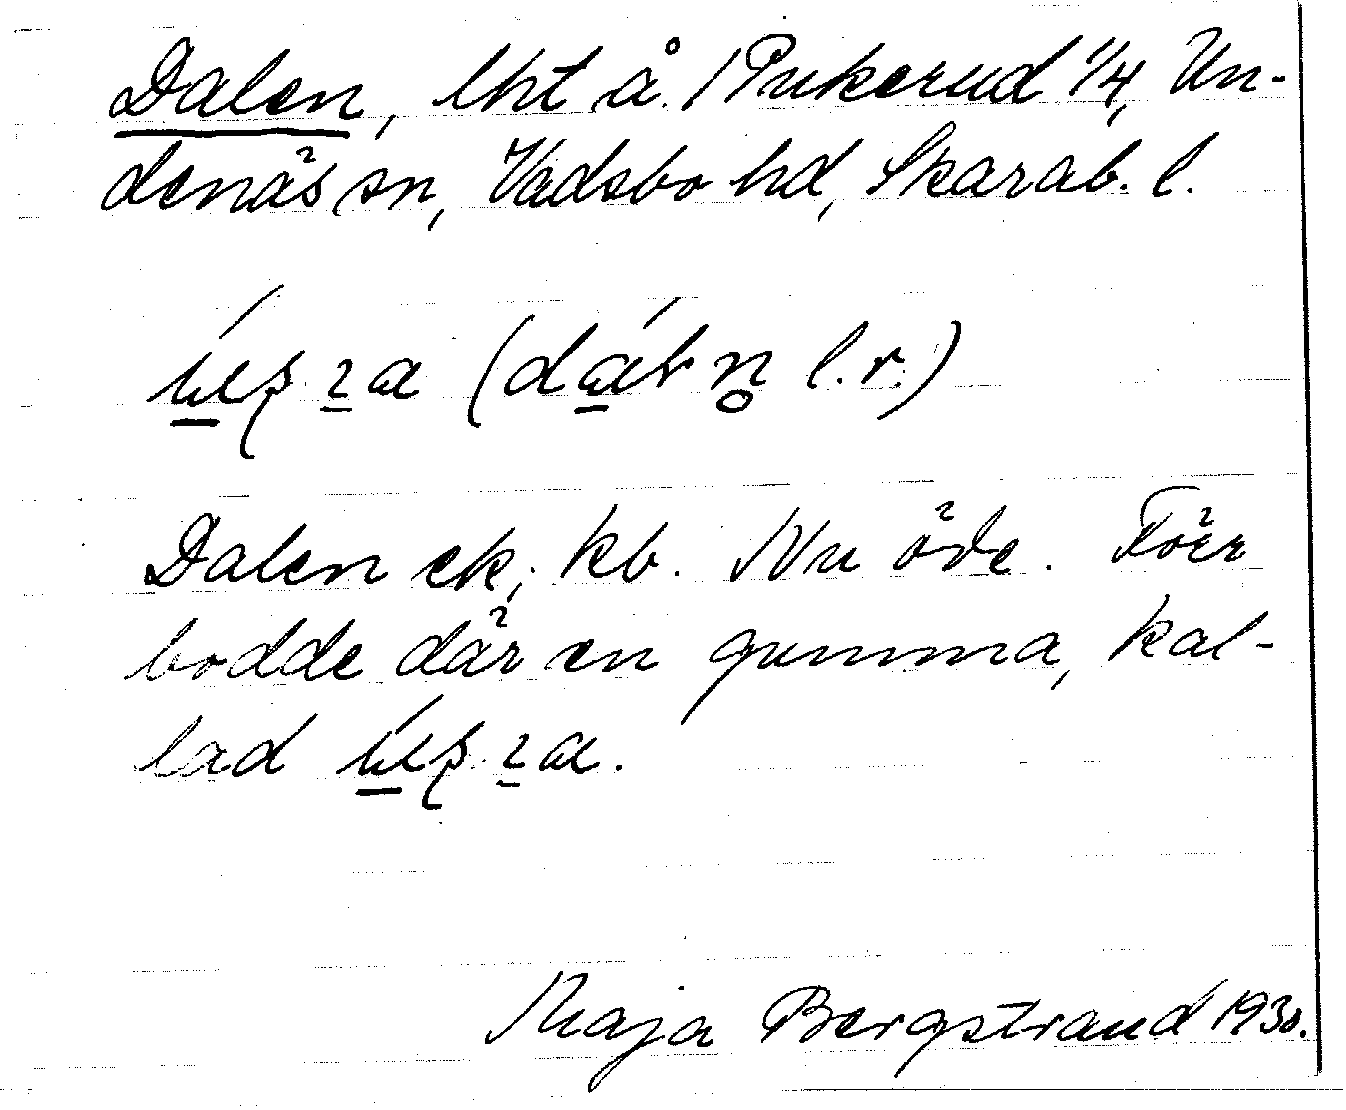 Dalen, lht å /Pukerud 1/4, Un-
denäs sn, Vadsbo hd, Skarab. l.
( l.r.)
Dalen ek, kb. Nu öde. Förr
bodde där en gumma, kal-
lad
Maja Bergstrand 1930.